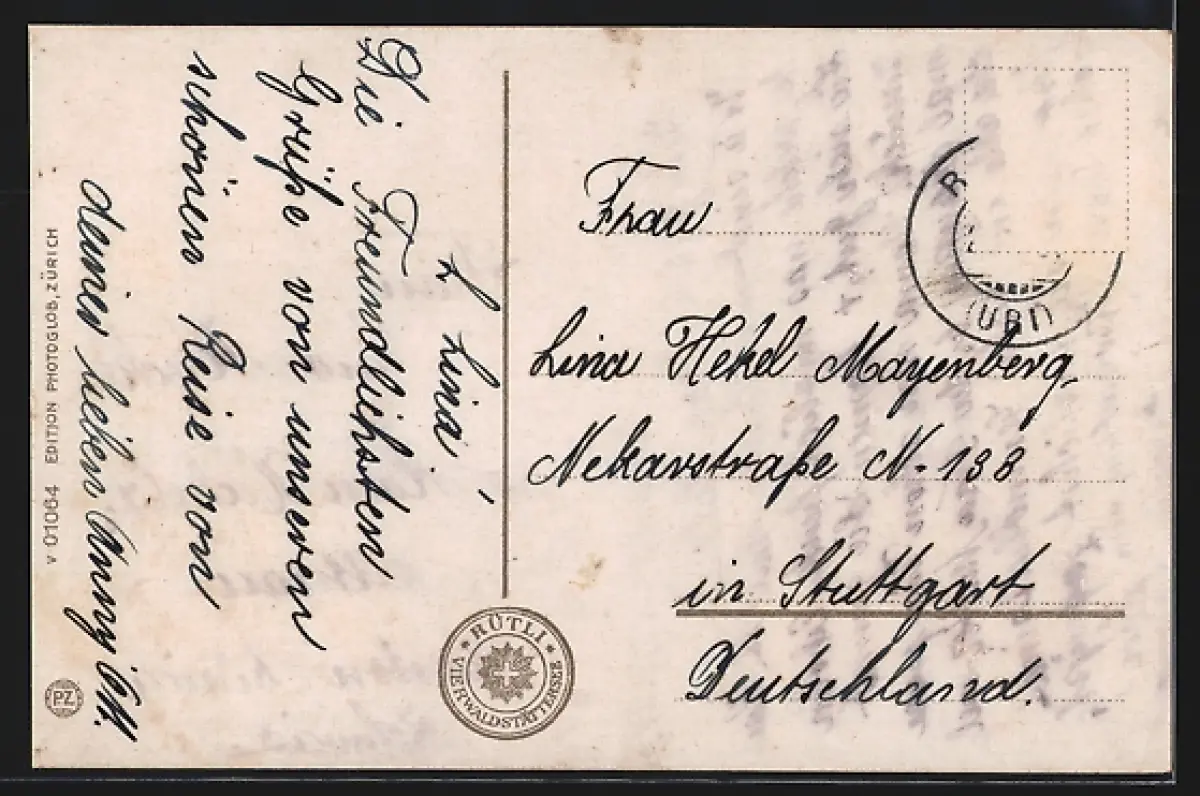 L. Lina!
Die Freundlichsten
Grüße von unseren
schönen Reise von
deiner lieben Anny Ott.
Frau
Lina Hekel Mayenberg,
Nekarstraße N. 133
in Stuttgart
Deutschland.
(URI)
RÜTLI
VIERWALDSTÄTTERSEE
V 01064 EDITION PHOTOGLOB, ZÜRICH
PZ